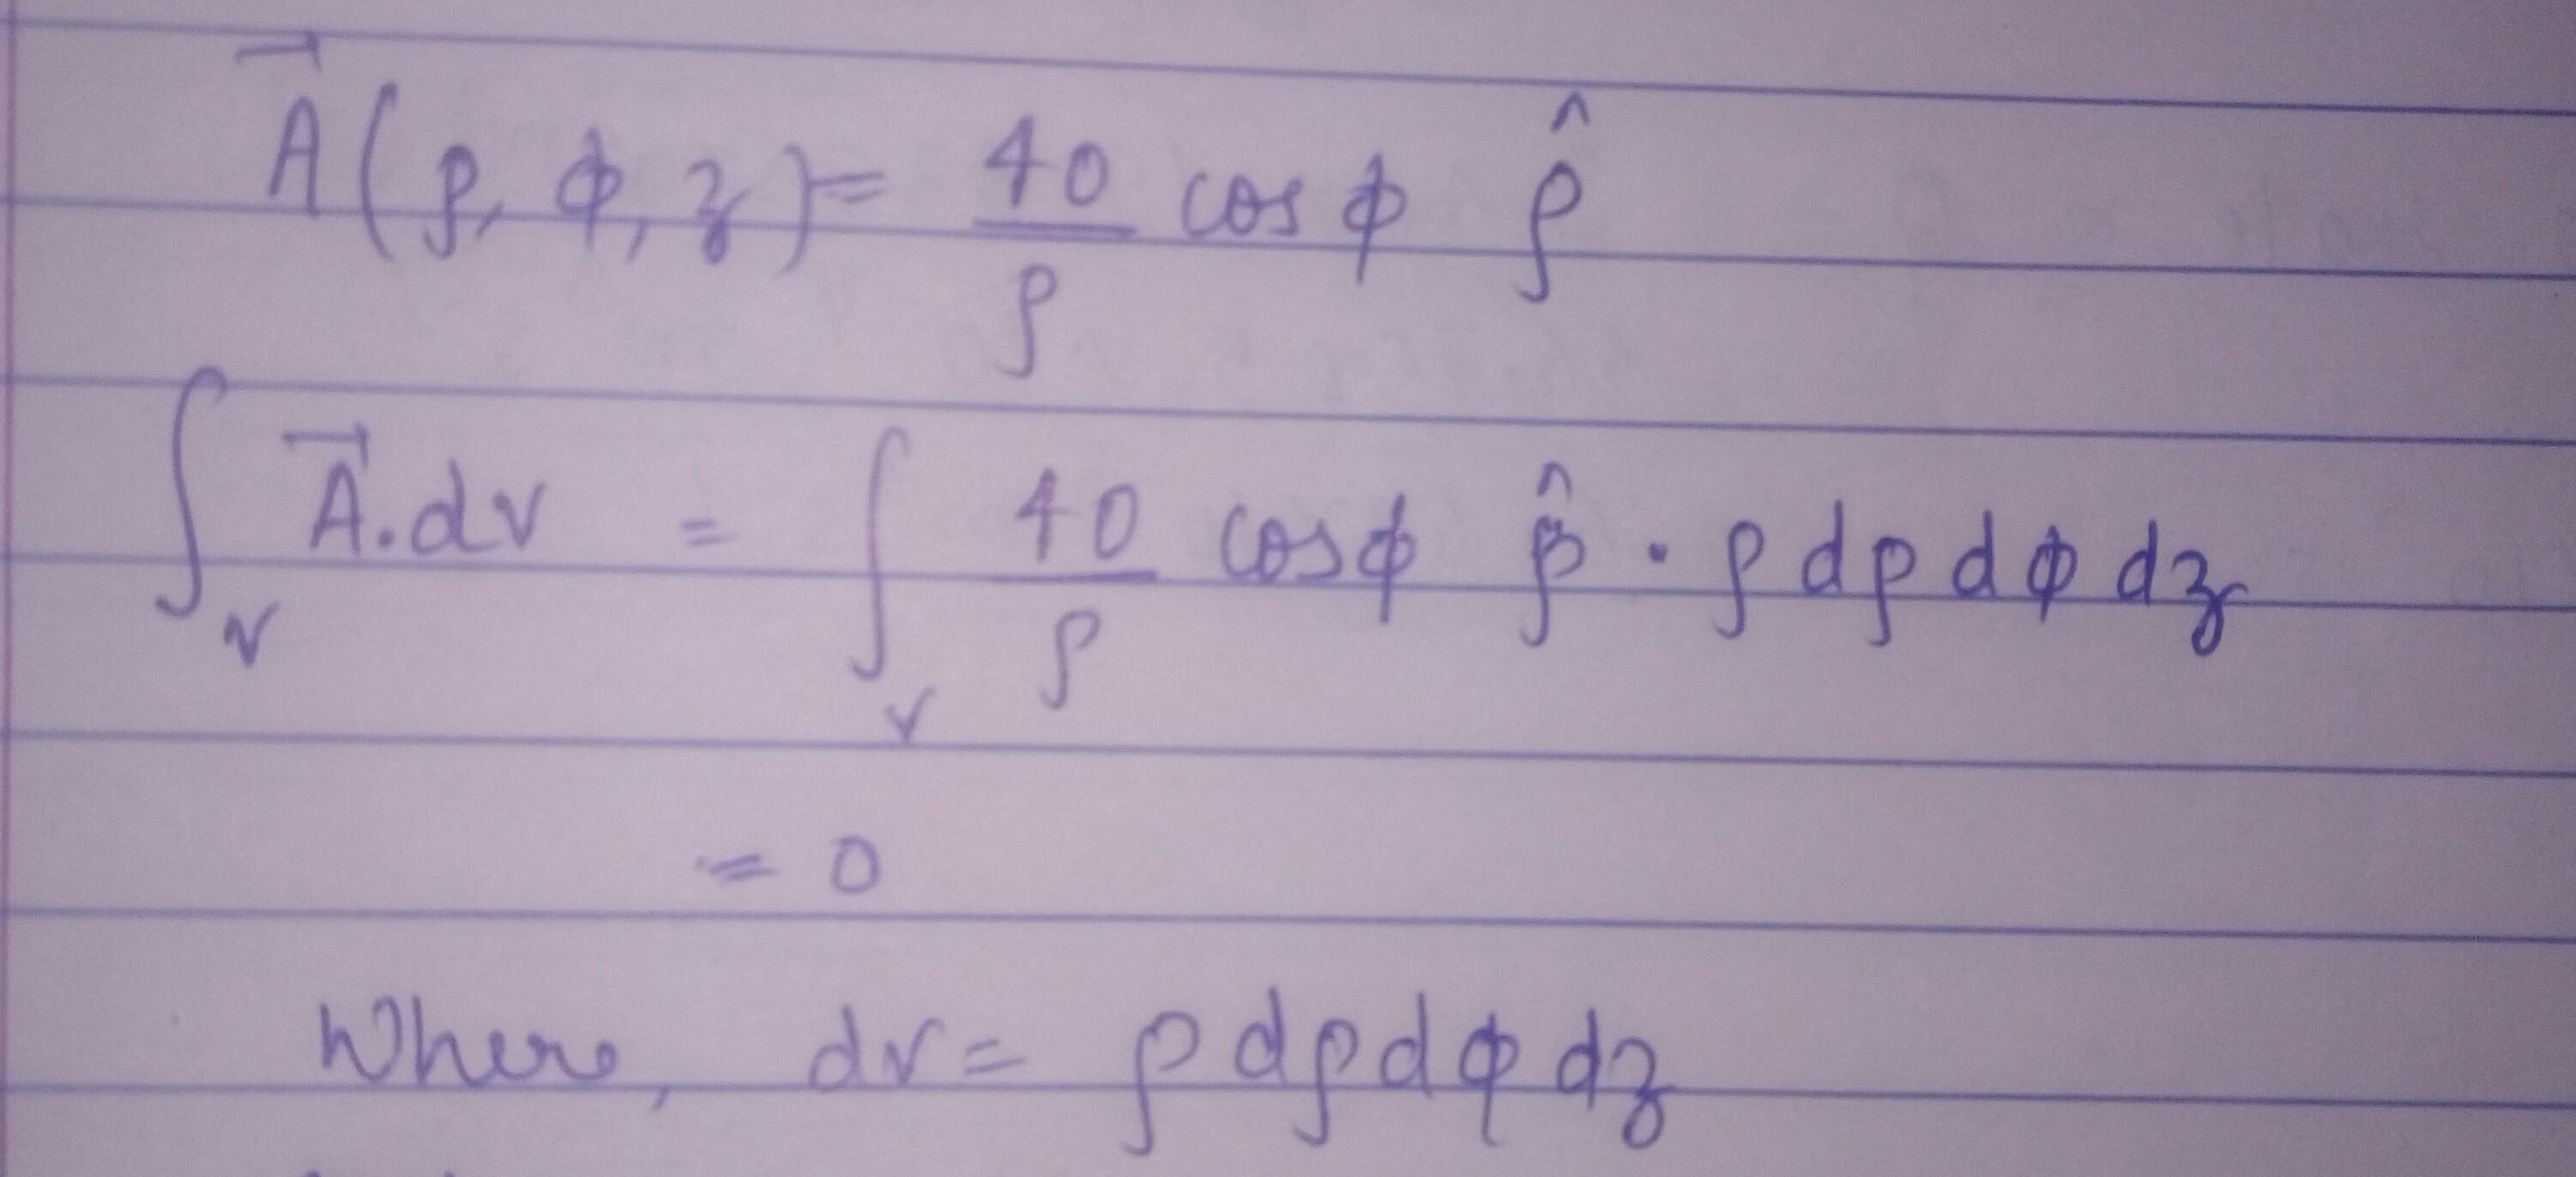 A⃗(ρ, ϕ, z) = 40/ρ cos ϕ ρ̂
∫_v A⃗.dv = ∫_v 40/ρ cosϕ ρ̂ . ρ dρ dϕ dz
= 0
Where, dv = ρ dρ dϕ dz